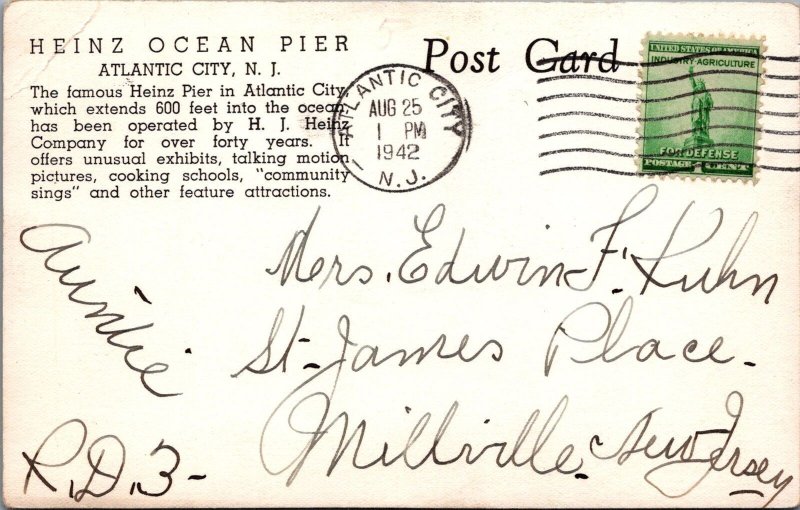 HEINZ OCEAN PIER
ATLANTIC CITY, N. J.
The famous Heinz Pier in Atlantic City,
which extends 600 feet into the ocean,
has been operated by H. J. Heinz
Company for over forty years. It
offers unusual exhibits, talking motion
pictures, cooking schools, "community
sings" and other feature attractions.
Post Card
ATLANTIC CITY
AUG 25
1 PM
1942
N. J.
UNITED STATES OF AMERICA
INDUSTRY-AGRICULTURE
FOR DEFENSE
POSTAGE 1 CENT
Auntie
Mrs. Edwin F. Kuhn
St. James Place.
Millville. New Jersey
R.D. 3-